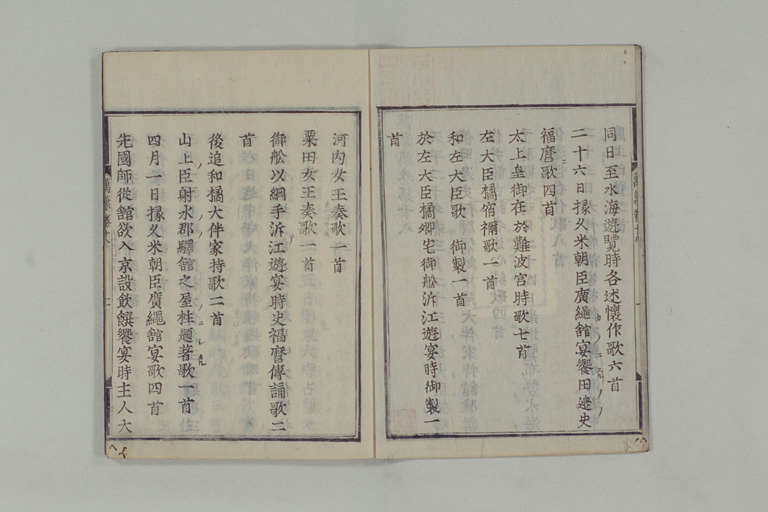 同日至水海遊覽時各述懷作歌六首
二十六日掾久米朝臣廣繩舘宴饗田邉史
福麿歌四首
太上皇御在於難波宮時歌七首
左大臣橘宿祢歌一首
和左大臣歌 御製一首
於左大臣橘卿宅御舩泝江遊宴時御製一
首
河内女王奏歌一首
粟田女王奏歌一首
御舩以綱手泝江遊宴時史福麿傳誦歌二
首
後追和橘大伴家持歌二首
山上臣射水郡驛舘之屋柱題著歌一首
四月一日掾久米朝臣廣繩舘宴歌四首
先國師從舘欲入京設飲饌饗宴時主人大